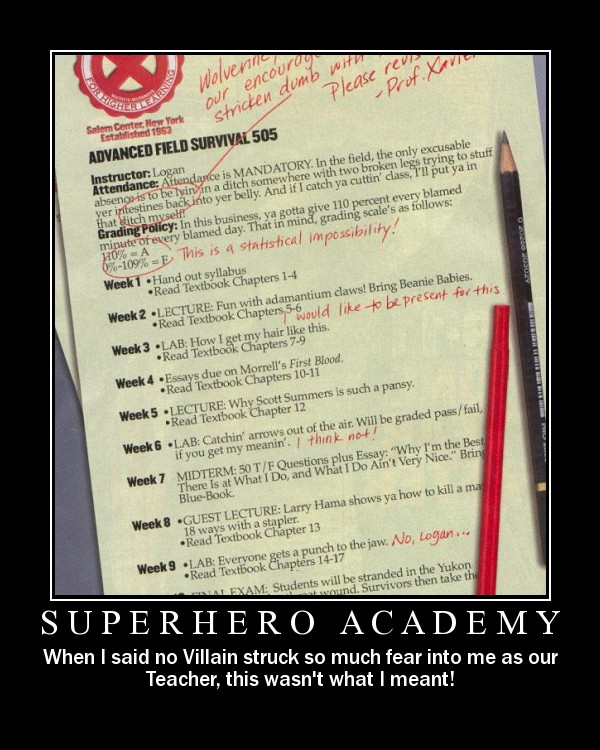 Wolverine,
our encourag
stricken dumb with
Please revis
-Prof. Xavier
FOR HIGHER LEARNING
Salem Center, New York
Established 1963
ADVANCED FIELD SURVIVAL 505
Instructor: Logan
Attendance: Attendance is MANDATORY. In the field, the only excusable
absence is to be lyin' in a ditch somewhere with two broken legs trying to stuff
yer intestines back into yer belly. And if I catch ya cuttin' class, I'll put ya in
that ditch myself
Grading Policy: In this business, ya gotta give 110 percent every blamed
minute of every blamed day. That in mind, grading scale's as follows:
110% = A
0%-109% = F
This is a statistical impossibility!
Week 1 • Hand out syllabus
• Read Textbook Chapters 1-4
Week 2 • LECTURE: Fun with adamantium claws! Bring Beanie Babies.
• Read Textbook Chapters 5-6
I would like to be present for this
Week 3 • LAB: How I get my hair like this.
• Read Textbook Chapters 7-9
Week 4 • Essays due on Morrell's First Blood.
• Read Textbook Chapters 10-11
Week 5 • LECTURE: Why Scott Summers is such a pansy.
• Read Textbook Chapter 12
Week 6 • LAB: Catchin' arrows out of the air. Will be graded pass/fail,
if you get my meanin'. I think not!
Week 7 MIDTERM: 50 T/F Questions plus Essay: "Why I'm the Best
There Is at What I Do, and What I Do Ain't Very Nice." Brin
Blue-Book.
Week 8 • GUEST LECTURE: Larry Hama shows ya how to kill a ma
18 ways with a stapler.
• Read Textbook Chapter 13
Week 9 • LAB: Everyone gets a punch to the jaw. No, Logan...
• Read Textbook Chapters 14-17
FINAL EXAM: Students will be stranded in the Yukon
wound. Survivors then take th
SUPERHERO ACADEMY
When I said no Villain struck so much fear into me as our
Teacher, this wasn't what I meant!